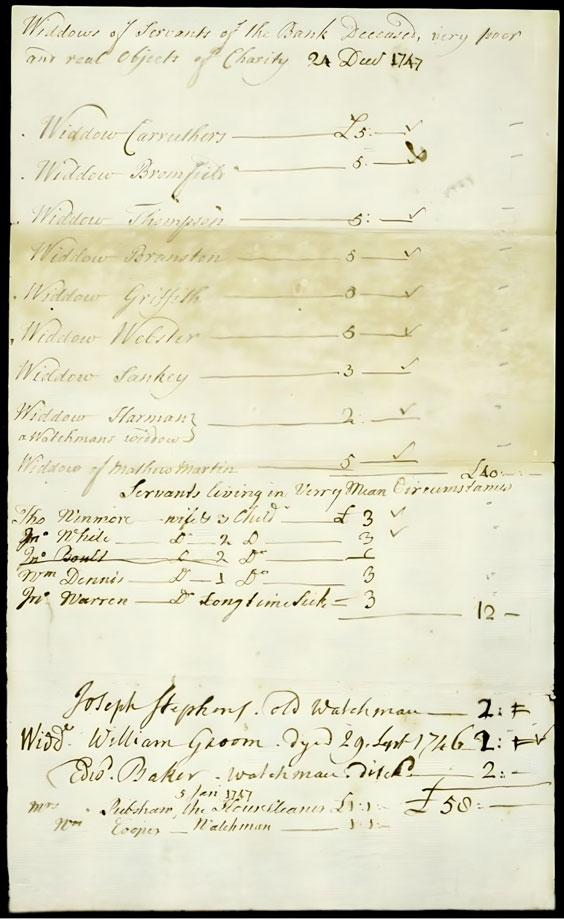 Widdows of Servants of the Bank Deceased, very poor
and real Objects of Charity 24 Decr 1747
Widdow Carruthers £5:
Widdow Bromfield 5:
Widdow Thompson 5:
Widdow Branston 5
Widdow Griffith
Widdow Webster 5
Widdow Sankey 3
Widdow Harman 2:
a Watchmans widdow
Widdow of Mathew Martin 5 £40:-
Servants living in Verry Mean Circumstances
Tho Ninmore wife & 3 Childn £ 3
Jno White Do 2 Do 3
Jno Boult 2 Do
Wm Dennis D 1 Do 3
Jno Warren Do Long time Sick 3 12 -
Joseph Stephens. old Watchman 2:
Widdw. William Groom. dyed 29. Sept 1746 2:
Edwd. Baker. Watchman. 2:-
5 Jan 1747 £58:-
Mrs the £1:1:
Wm Cooper Watchman 1:1: